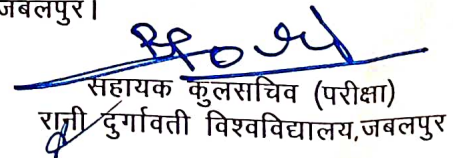 जबलपुर।
सहायक कुलसचिव (परीक्षा)
रानी दुर्गावती विश्वविद्यालय,जबलपुर